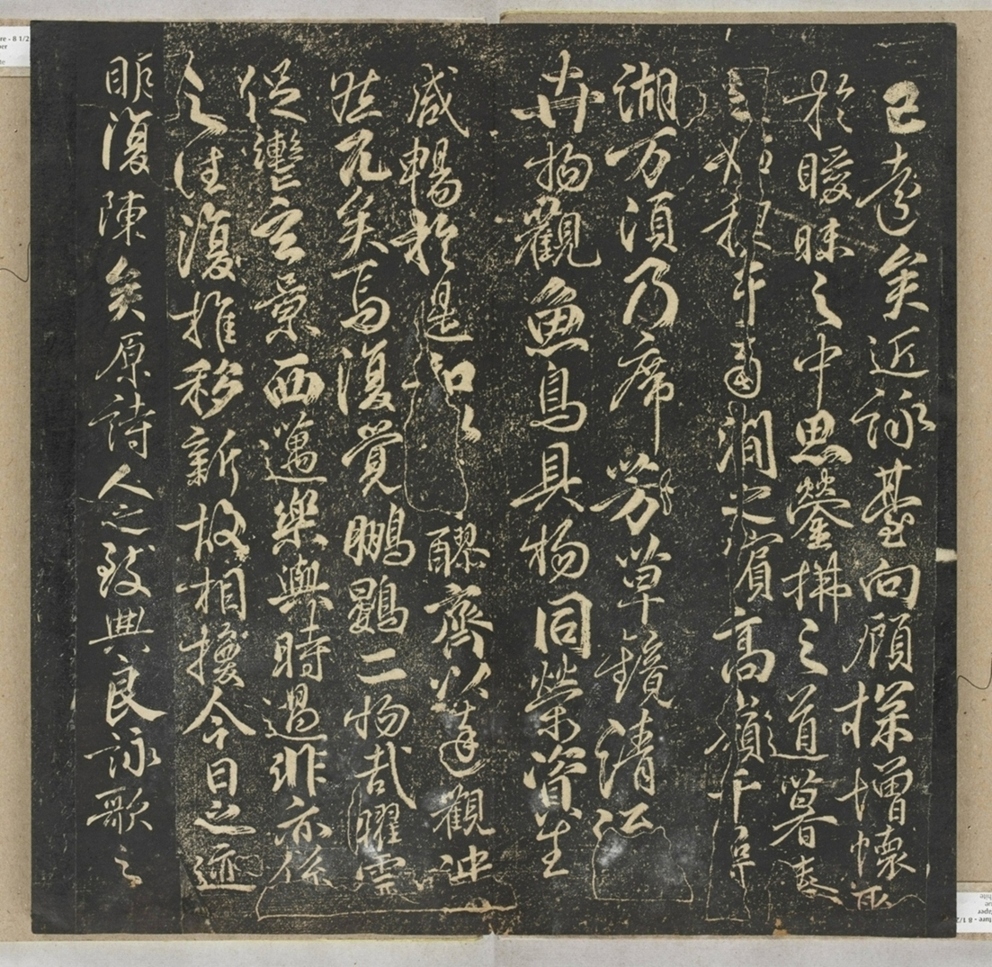 已遠矣近詠臺向顧探增懷聊
於曖昧之中思瑩拂之道暮春
之始禊于南澗之濱高嶺千尋
湖万頃乃席芳草鏡清流
卉物觀魚鳥具物同榮資生
咸暢於是和以醪齊以達觀泱
然兀矣焉復覺鵬鷃二物哉耀靈
促轡玄景西邁樂與時過悲亦係
之往復推移新故相換今日之迹
明復陳矣原詩人之致興良詠歌之